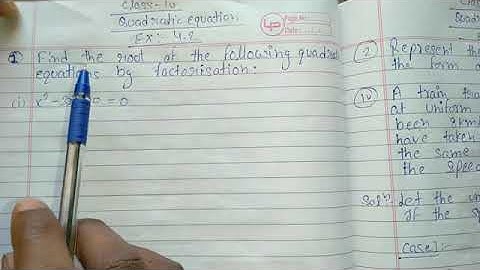 Class-10
Quadratic equation.
Ex: 4.2
Find the root of the following quadrat
equations by factorisation:
(i) x² - = 0
2 Represent the
the form o
A train tra
at uniform
been 8km
have taken
the same
the spee
Solⁿ: Let the un
If the s
Case I:-